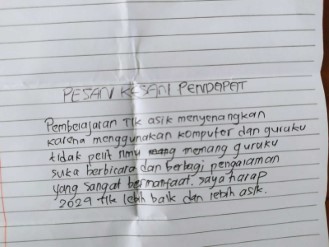 PESAN KESAN PENDAPAT
Pembelajaran TIK asik menyenangkan
karena menggunakan komputer dan guruku
tidak pelit ilmu memang guruku
suka berbicara dan berbagi pengalaman
yang sangat bermanfaat. saya harap
2024 TIK lebih baik dan lebih asik.